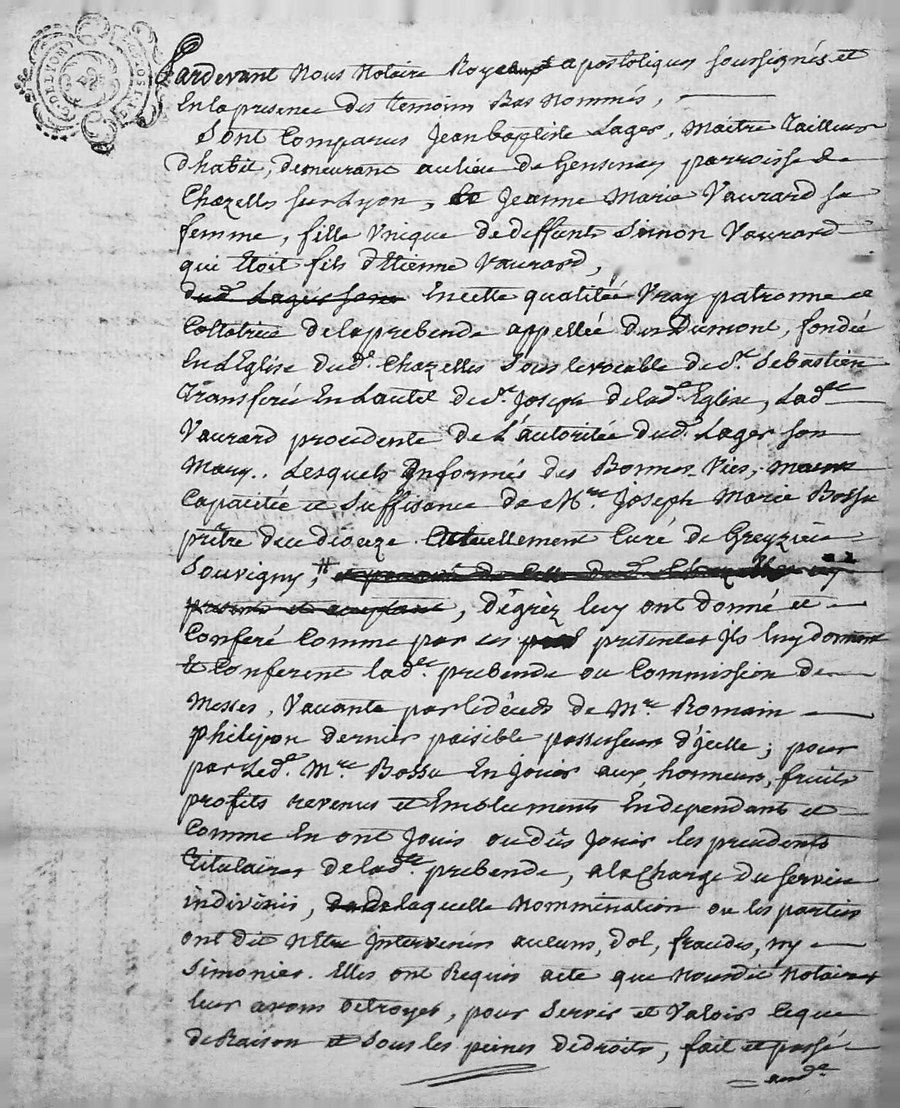 Pardevant Nous Notaire Royaux apostoliques soussignés et
En la presence des temoins Bas Nommés,
Sont Comparus Jean baptiste Lager, Maitre Tailleur
d'habit, demeurant au lieu de parroisse de
Chazelles sur Lyon, Jeanne Marie Vaurard sa
femme, fille Unique de deffunt Simon Vaurard
qui Etoit fils d'Etienne Vaurard,
dud. Lager son En cette qualitée Vray patronne et
Collatrice de la prebende appellée des Dumont, fondée
En L'Eglise dud. Chazelles sous le vocable de St. Sebastien
Transferée En L'autel de St. Joseph de lad. Eglise, Ladte
Vaurard procedente de L'autoritée dud. Lager son
Mary. Lesquels Informés des Bonnes Vies, moeurs
Capacitée et Suffisance de Mre. Joseph Marie Bossu
prêtre du dioceze actuellement Curé de Greyzieu
Souvigny,
presens et acceptant, dégrèz luy ont donné et
Conferé Comme par ces presentes Ils luy donnent
Et Conferent ladte. prebende ou Commission de
Messes, Vacante par le décéds de Mre Romain
philipon dernier paisible possesseur d'jcelle; pour
par Led. Mre. Bossu En Jouir aux honneurs, fruits
profits revenus et Emoluments En dependants et
Comme En ont Joui ou dûs Jouir les precedents
Titulaires de ladte. prebende, a la Charge du service
indivinis, de laquelle Nommination ou les parties
ont dit N'Etre Intervenües aucuns, dol, fraudes, ny
Simonies. Elles ont Requis acte que Nousdit Notaires
leur avons Octroyés, pour Servir et Valoir Ce que
de Raison et sous les peines de droits, fait et passé